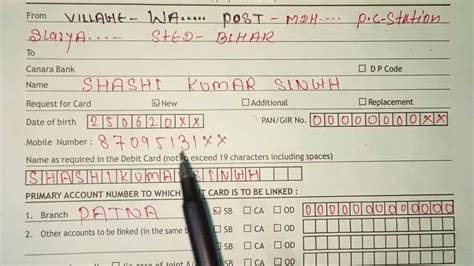 From VILLAGE - WA..... POST - MDH.... P.C-Station
STED- BIHAR
To
Canara Bank ☐ D P Code
Name SHASHI KUMAR SINGH
Request for Card ☑ New ☐ Additional ☐ Replacement
Date of birth 250620XX PAN/GIR No. 00000000XX
Mobile Number : 87095131XX
Name as required in the Debit Card (not to exceed 19 characters including spaces)
SHASHI KUMAR SINGH
PRIMARY ACCOUNT NUMBER TO WHICH CARD IS TO BE LINKED :
1. Branch PATNA ☑ SB ☐ CA ☐ OD 0000000000000
2. Other accounts to be linked (in the same ☐ SB ☐ CA ☐ OD
☐ CA ☐ OD